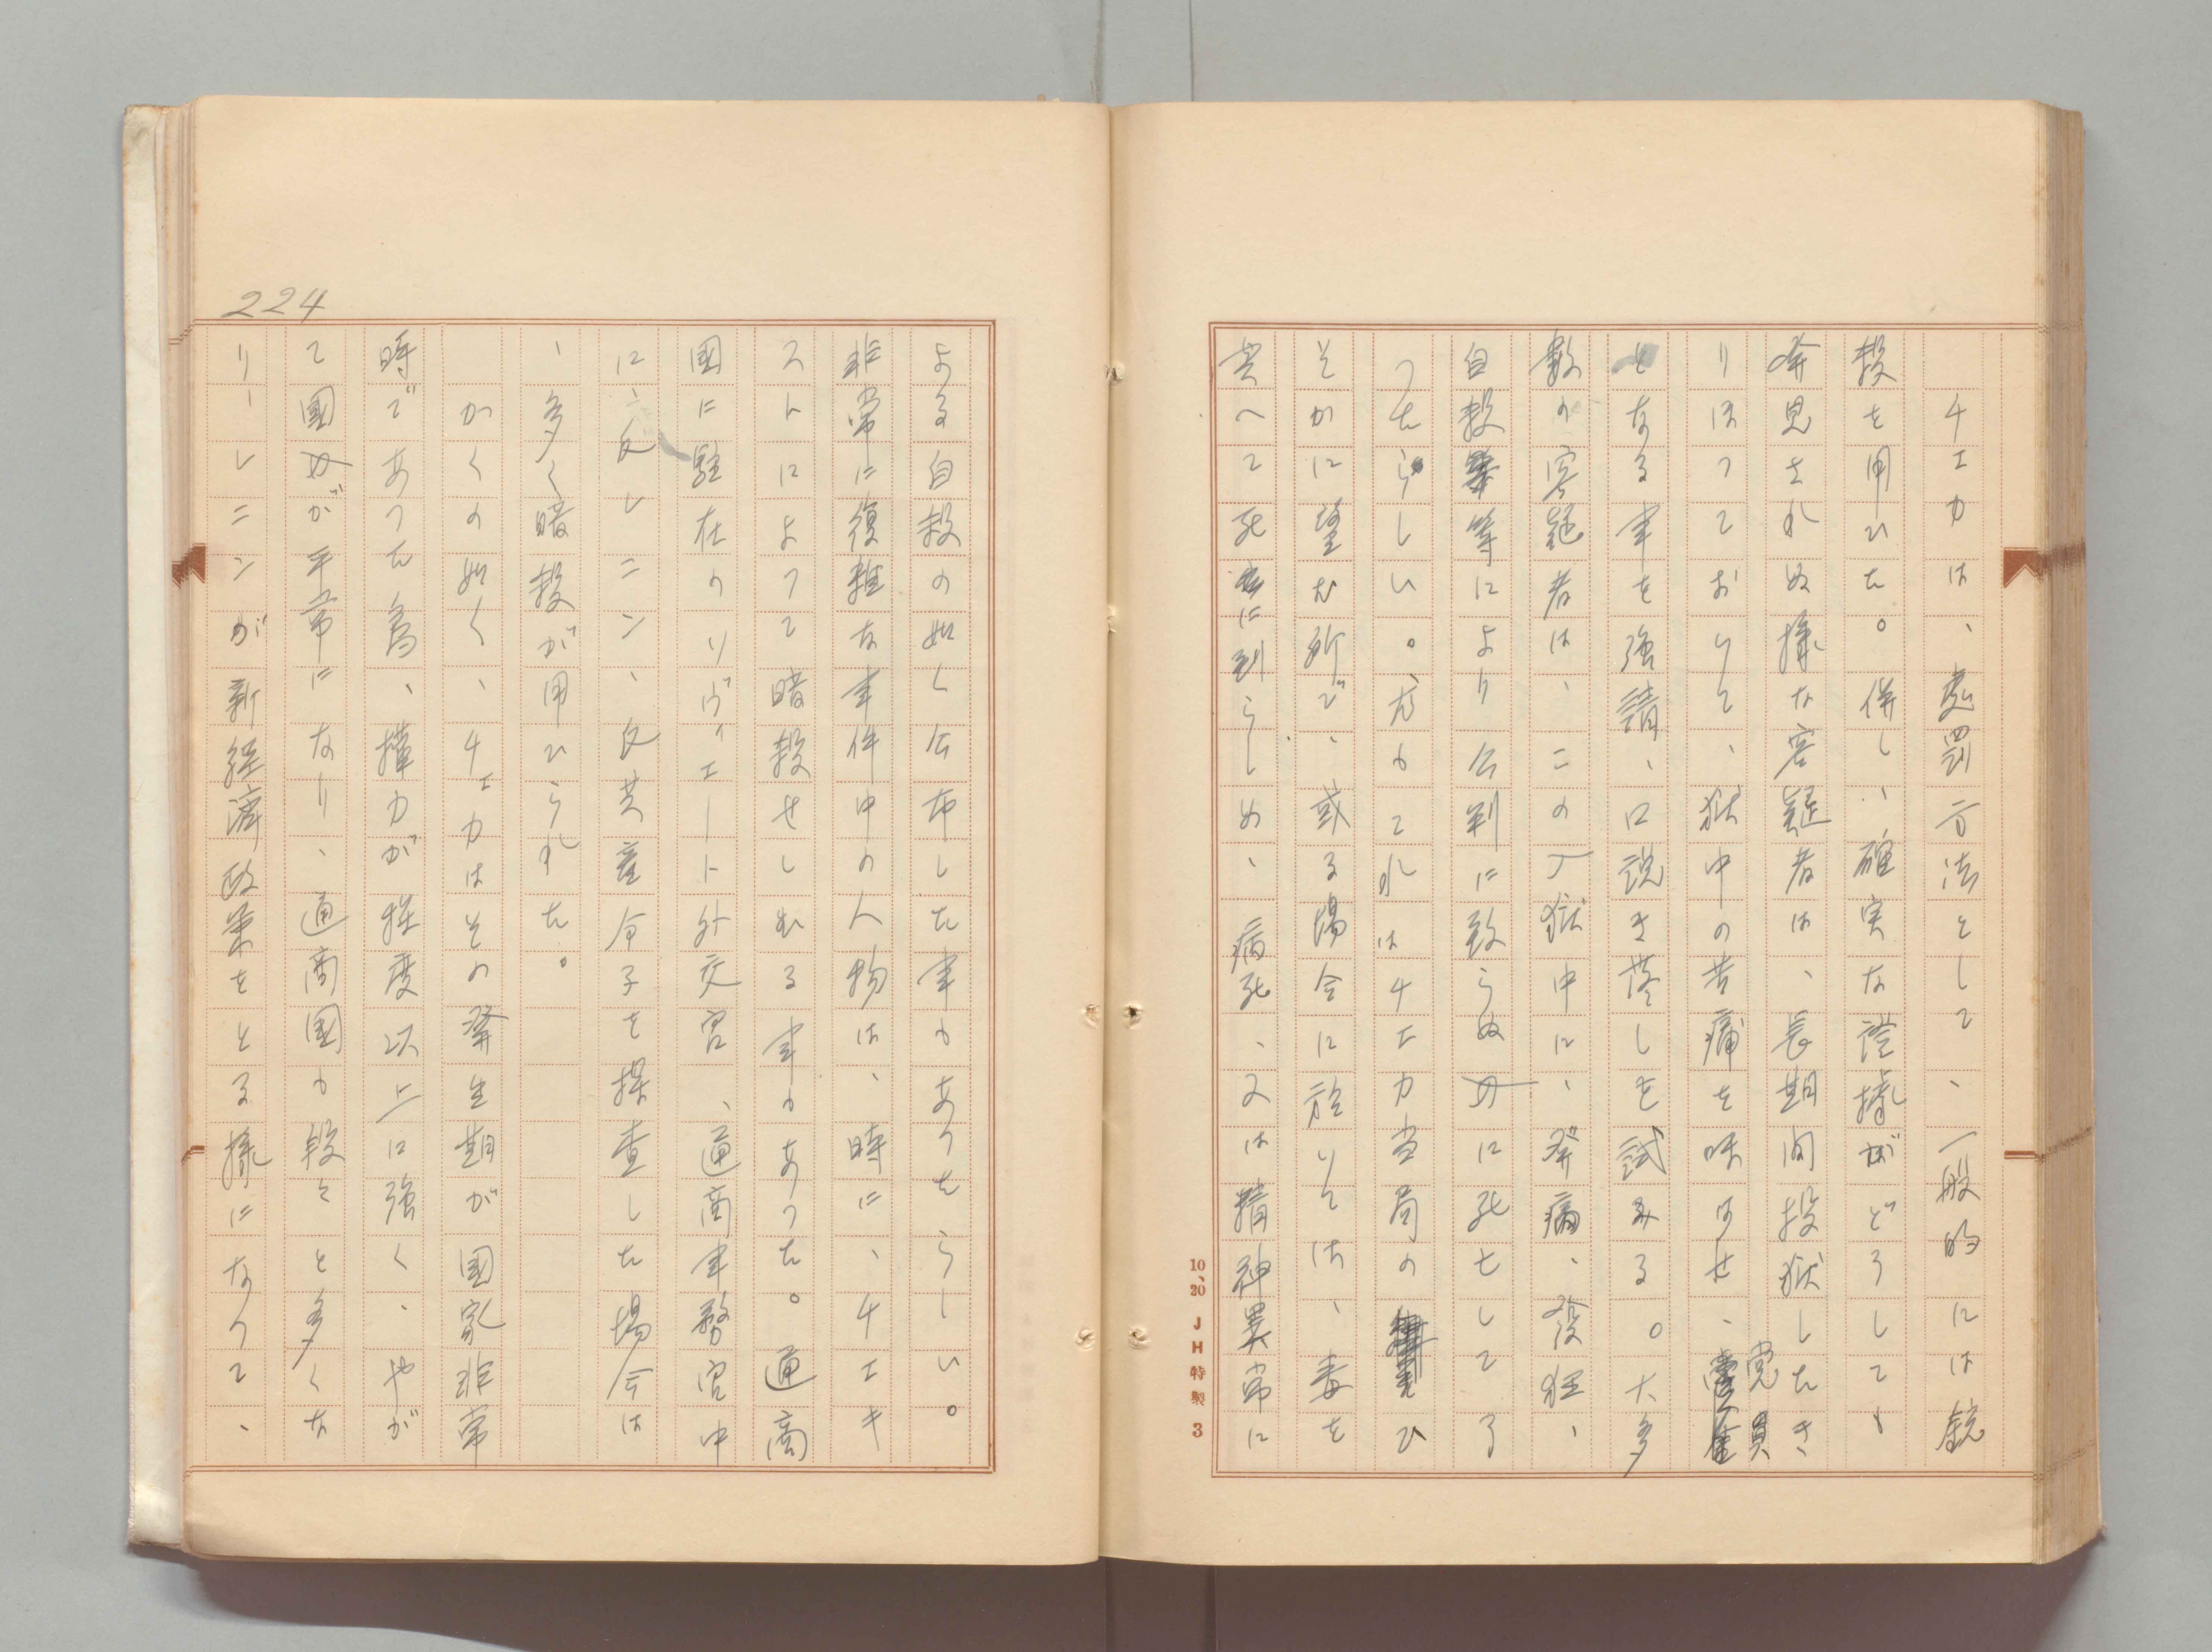 チエカは、処罰方法として、一般的には銃
殺を用ひた。併し、確実な證據がどうしても
発見されぬ様な容疑者は、長期間投獄したき
りほつておいて、獄中の苦痛を味はせ、党員
となる事を強請、口説き落しを試みる。大多
数の容疑者は、この入獄中に、発病、發狂、
自殺等により公判に致らぬ内に死亡して了
つたらしい。尤もこれはチエカ当局のひ
そかに望む所で、或る場合に於いては、毒を
与へて死に到らしめ、病死、又は精神異常に
よる自殺の如く公布した事もあつたらしい。
非常に復雑な事件中の人物は、時に、チエキ
ストによつて暗殺せしむる事もあつた。通商
國に駐在のソヴィエート外交官、通商事務官中
に、反レニン、反共産分子を探査した場合は
、多く暗殺が用ひられた。
かくの如く、チエカはその発生期が國家非常
時であつた為、権力が程度以上に強く、やが
て國が平常になり、通商國も段々と多くな
り、レニンが新経済政策をとる様になつて、
224
10、20 JH特製 3